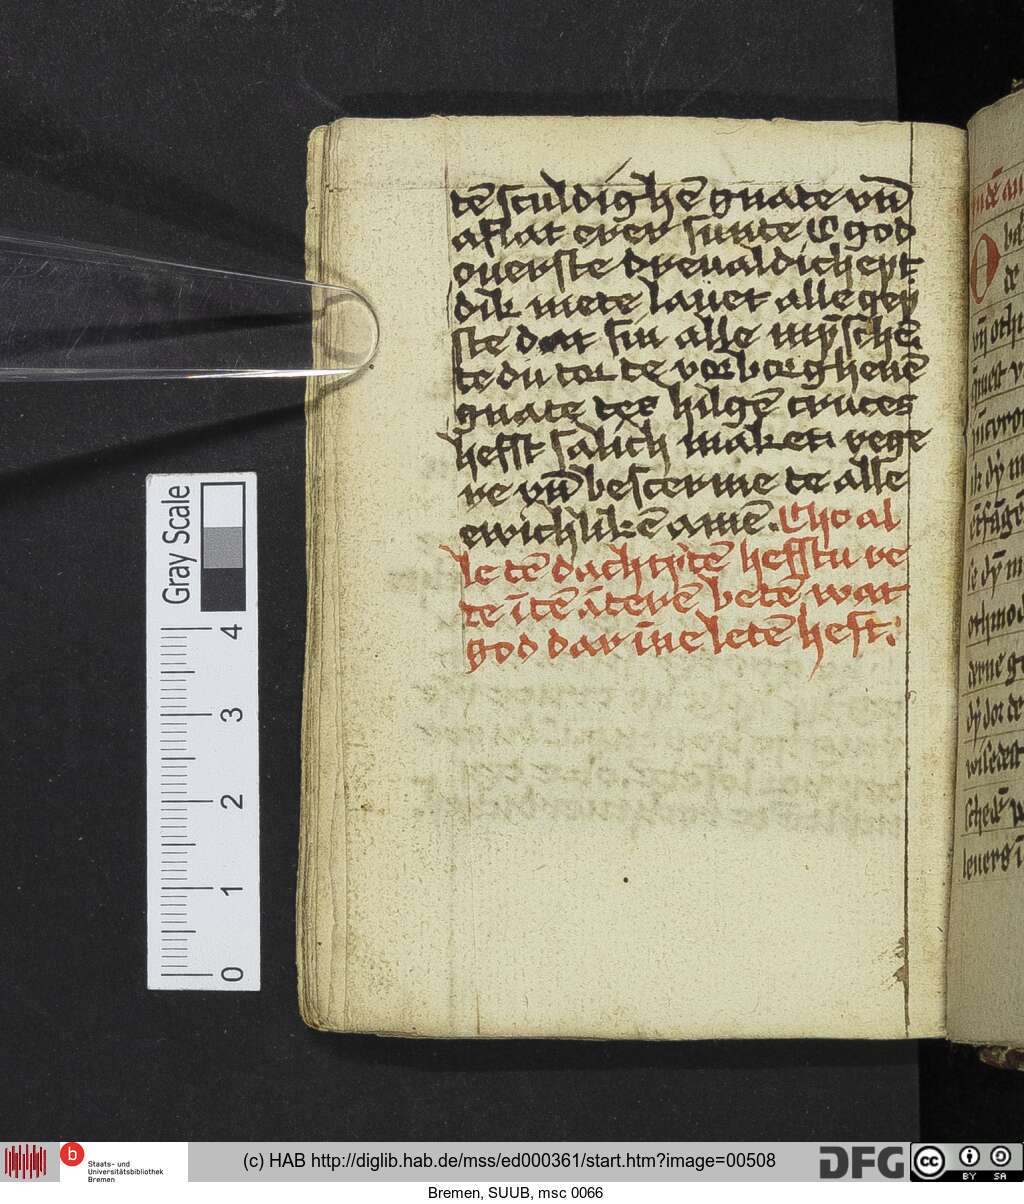 tē sculdighē gnate vn̄
aflat erer sunte O god
ouerste dreualdicheyt
dik mete lauet alle gey
ste dat sin alle mȳschē.
te du dor te vorborgheuē
gnate tes hilgē cruces
hefst salich maket. rege
re vn̄ bescerme te alle
ewichlikē amē. Tho al
le tē dachtitē hefftu re
te ītē āterē betē wat
god dar īne letē heft.
Gray Scale
4
3
2
1
0
b
Staats- und
Universitätsbibliothek
Bremen
(c) HAB http://diglib.hab.de/mss/ed000361/start.htm?image=00508
DFG
cc
BY SA
Bremen, SUUB, msc 0066